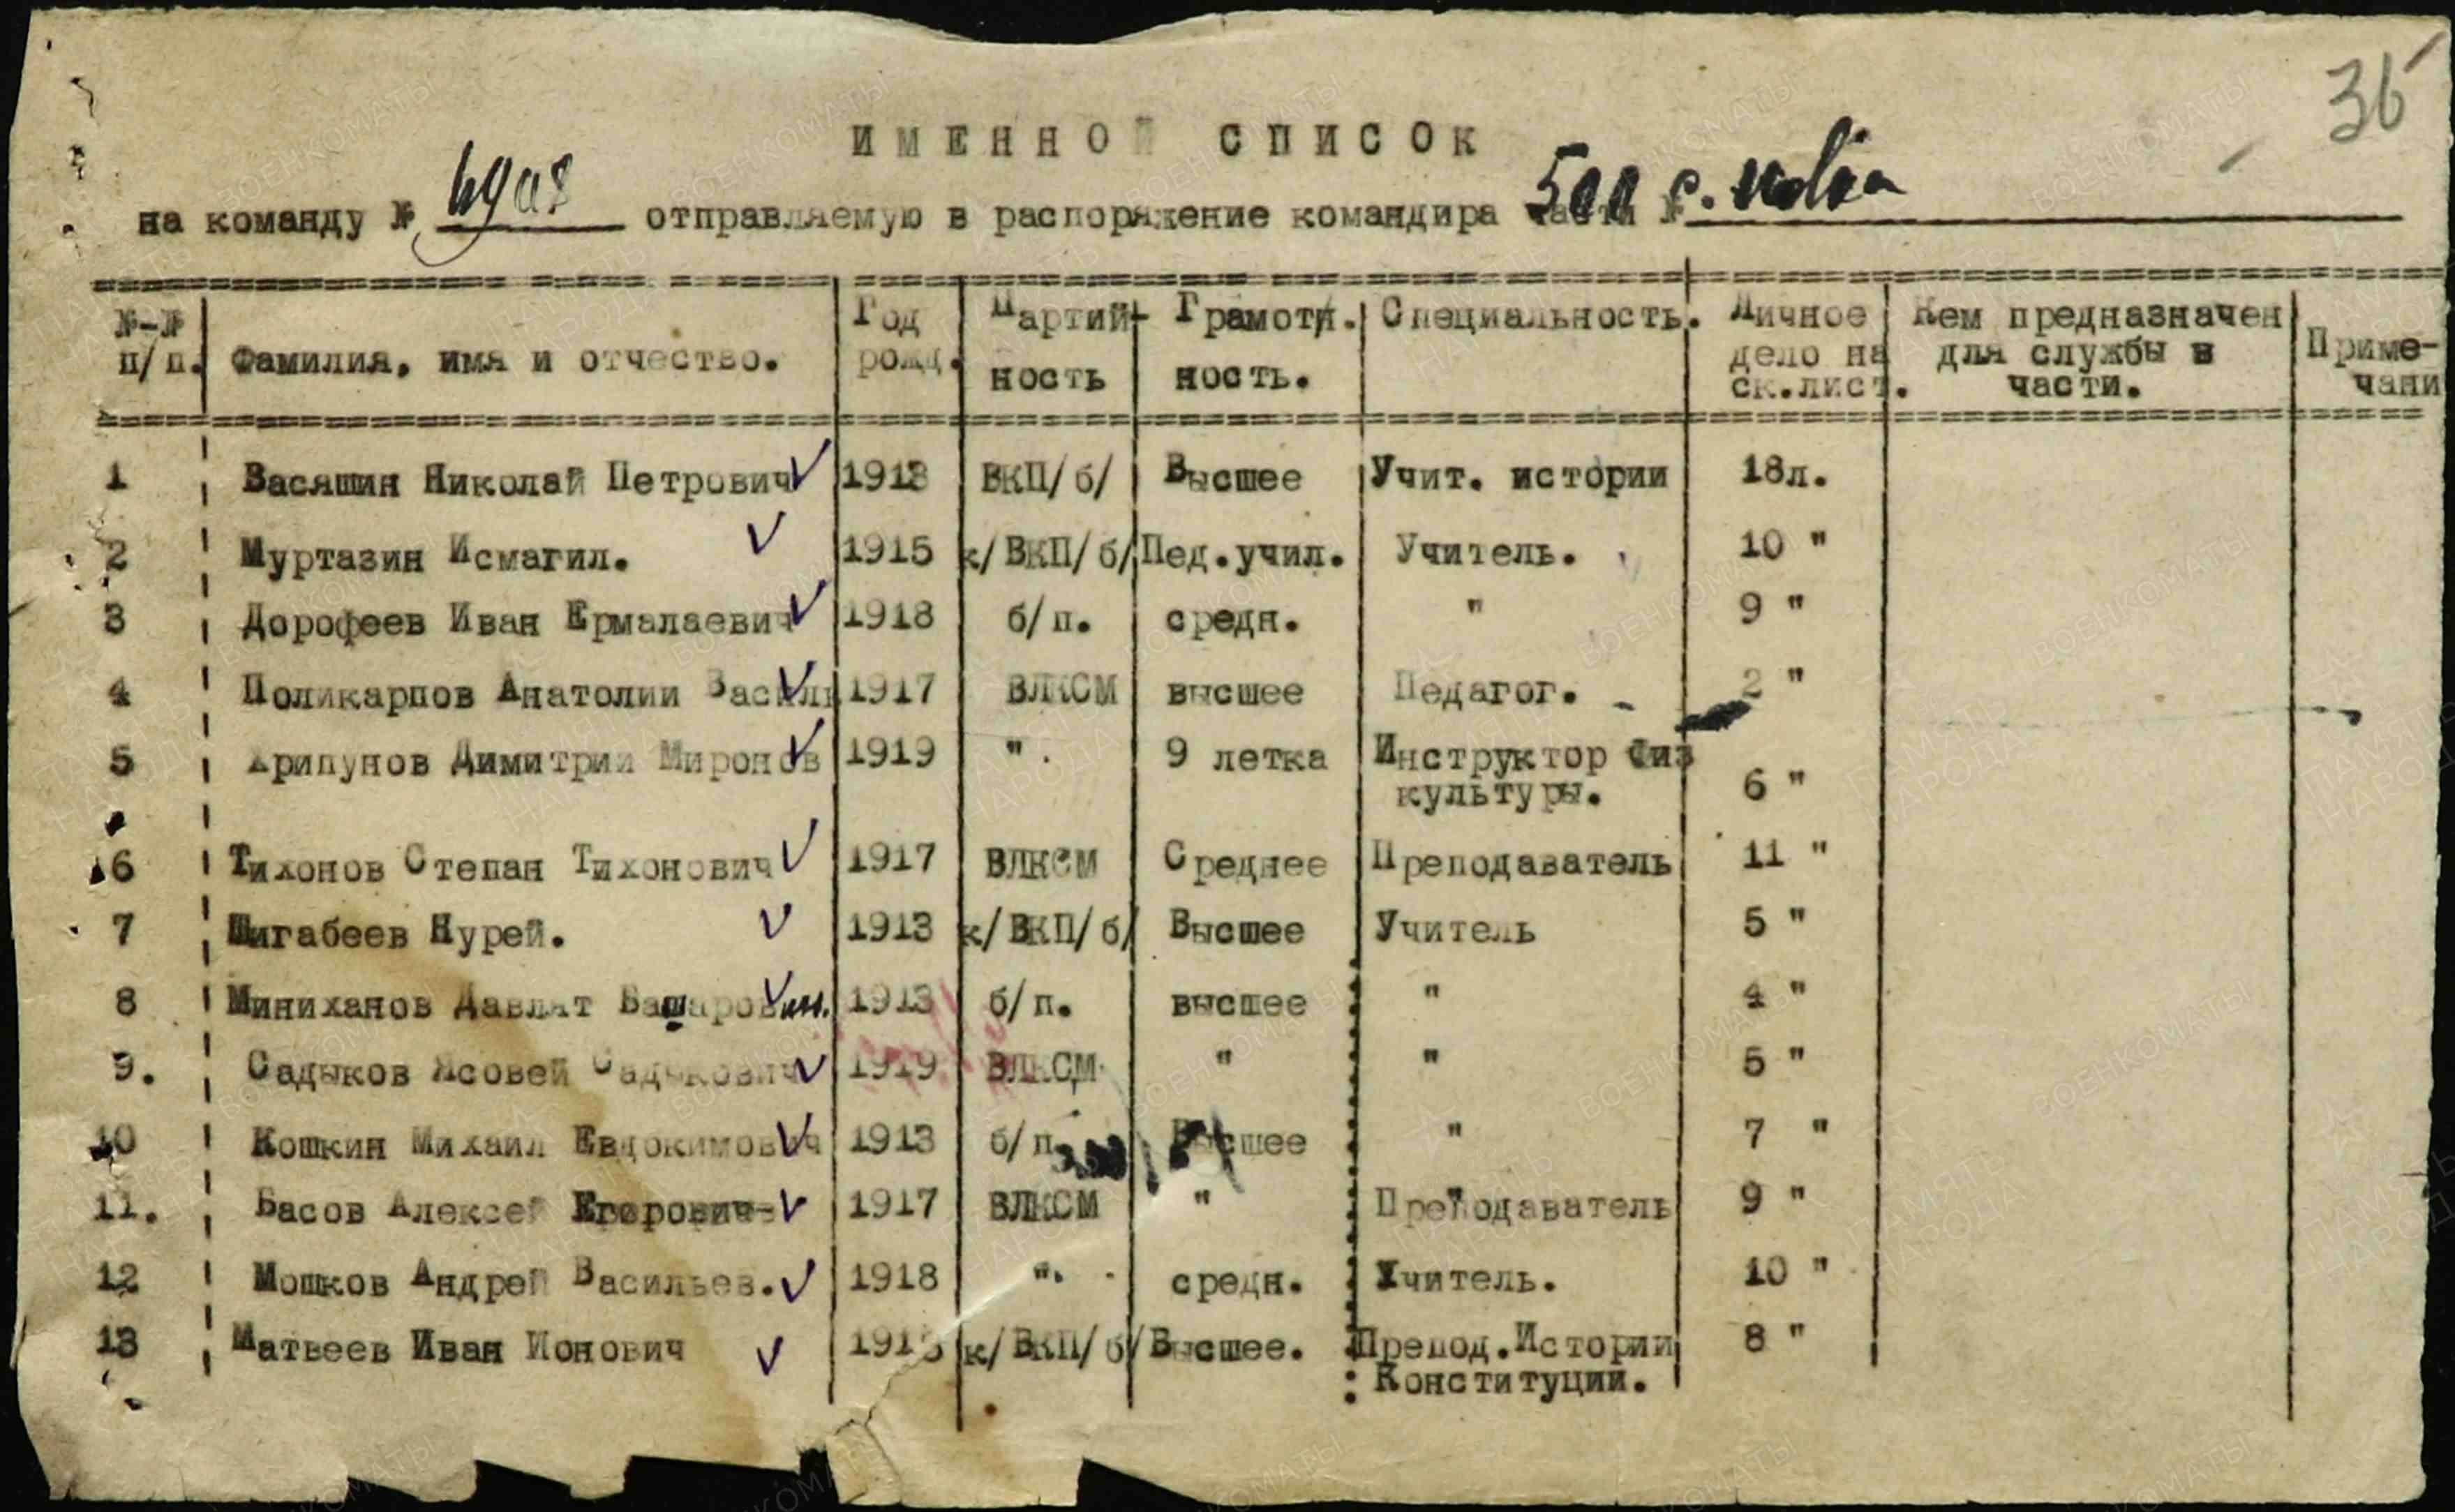 36
ИМЕННОЙ СПИСОК
на команду № отправляемую в распоряжение командира части №
№-№ п/п. Фамилия, имя и отчество. Год рожд. Партий-ность Грамотн.ность. Специальность. Личное дело на ск.лист. Кем предназначен для службы в части. Приме-чани
1 Васяшин Николай Петрович 1913 ВКП/б/ Высшее Учит. истории 18л.
2 Муртазин Исмагил. 1915 к/ВКП/б/ Пед.учил. Учитель. 10 "
3 Дорофеев Иван Ермалаевич 1918 б/п. средн. " 9 "
4 Поликарпов Анатолии Василь 1917 ВЛКСМ высшее Педагог. 2 "
5 Хрипунов Димитрии Миронов 1919 " 9 летка Инструктор Физ
культуры. 6 "
6 Тихонов Степан Тихонович 1917 ВЛКСМ Среднее Преподаватель 11 "
7 Шигабеев Нурей. 1913 к/ВКП/б/ Высшее Учитель 5 "
8 Миниханов Давлат 1913 б/п. высшее " 4 "
9. Садыков Ясовей Садыкович 1919 ВЛКСМ " " 5 "
10 Кошкин Михаил Евдокимович 1913 б/п Высшее " 7 "
11. Басов Алексей Егорович 1917 ВЛКСМ " Преподаватель 9 "
12 Мошков Андрей Васильев. 1918 " средн. Учитель. 10 "
13 Матвеев Иван Ионович к/ВКП/б/ Высшее. Препод.Истории 8 "
Конституции.